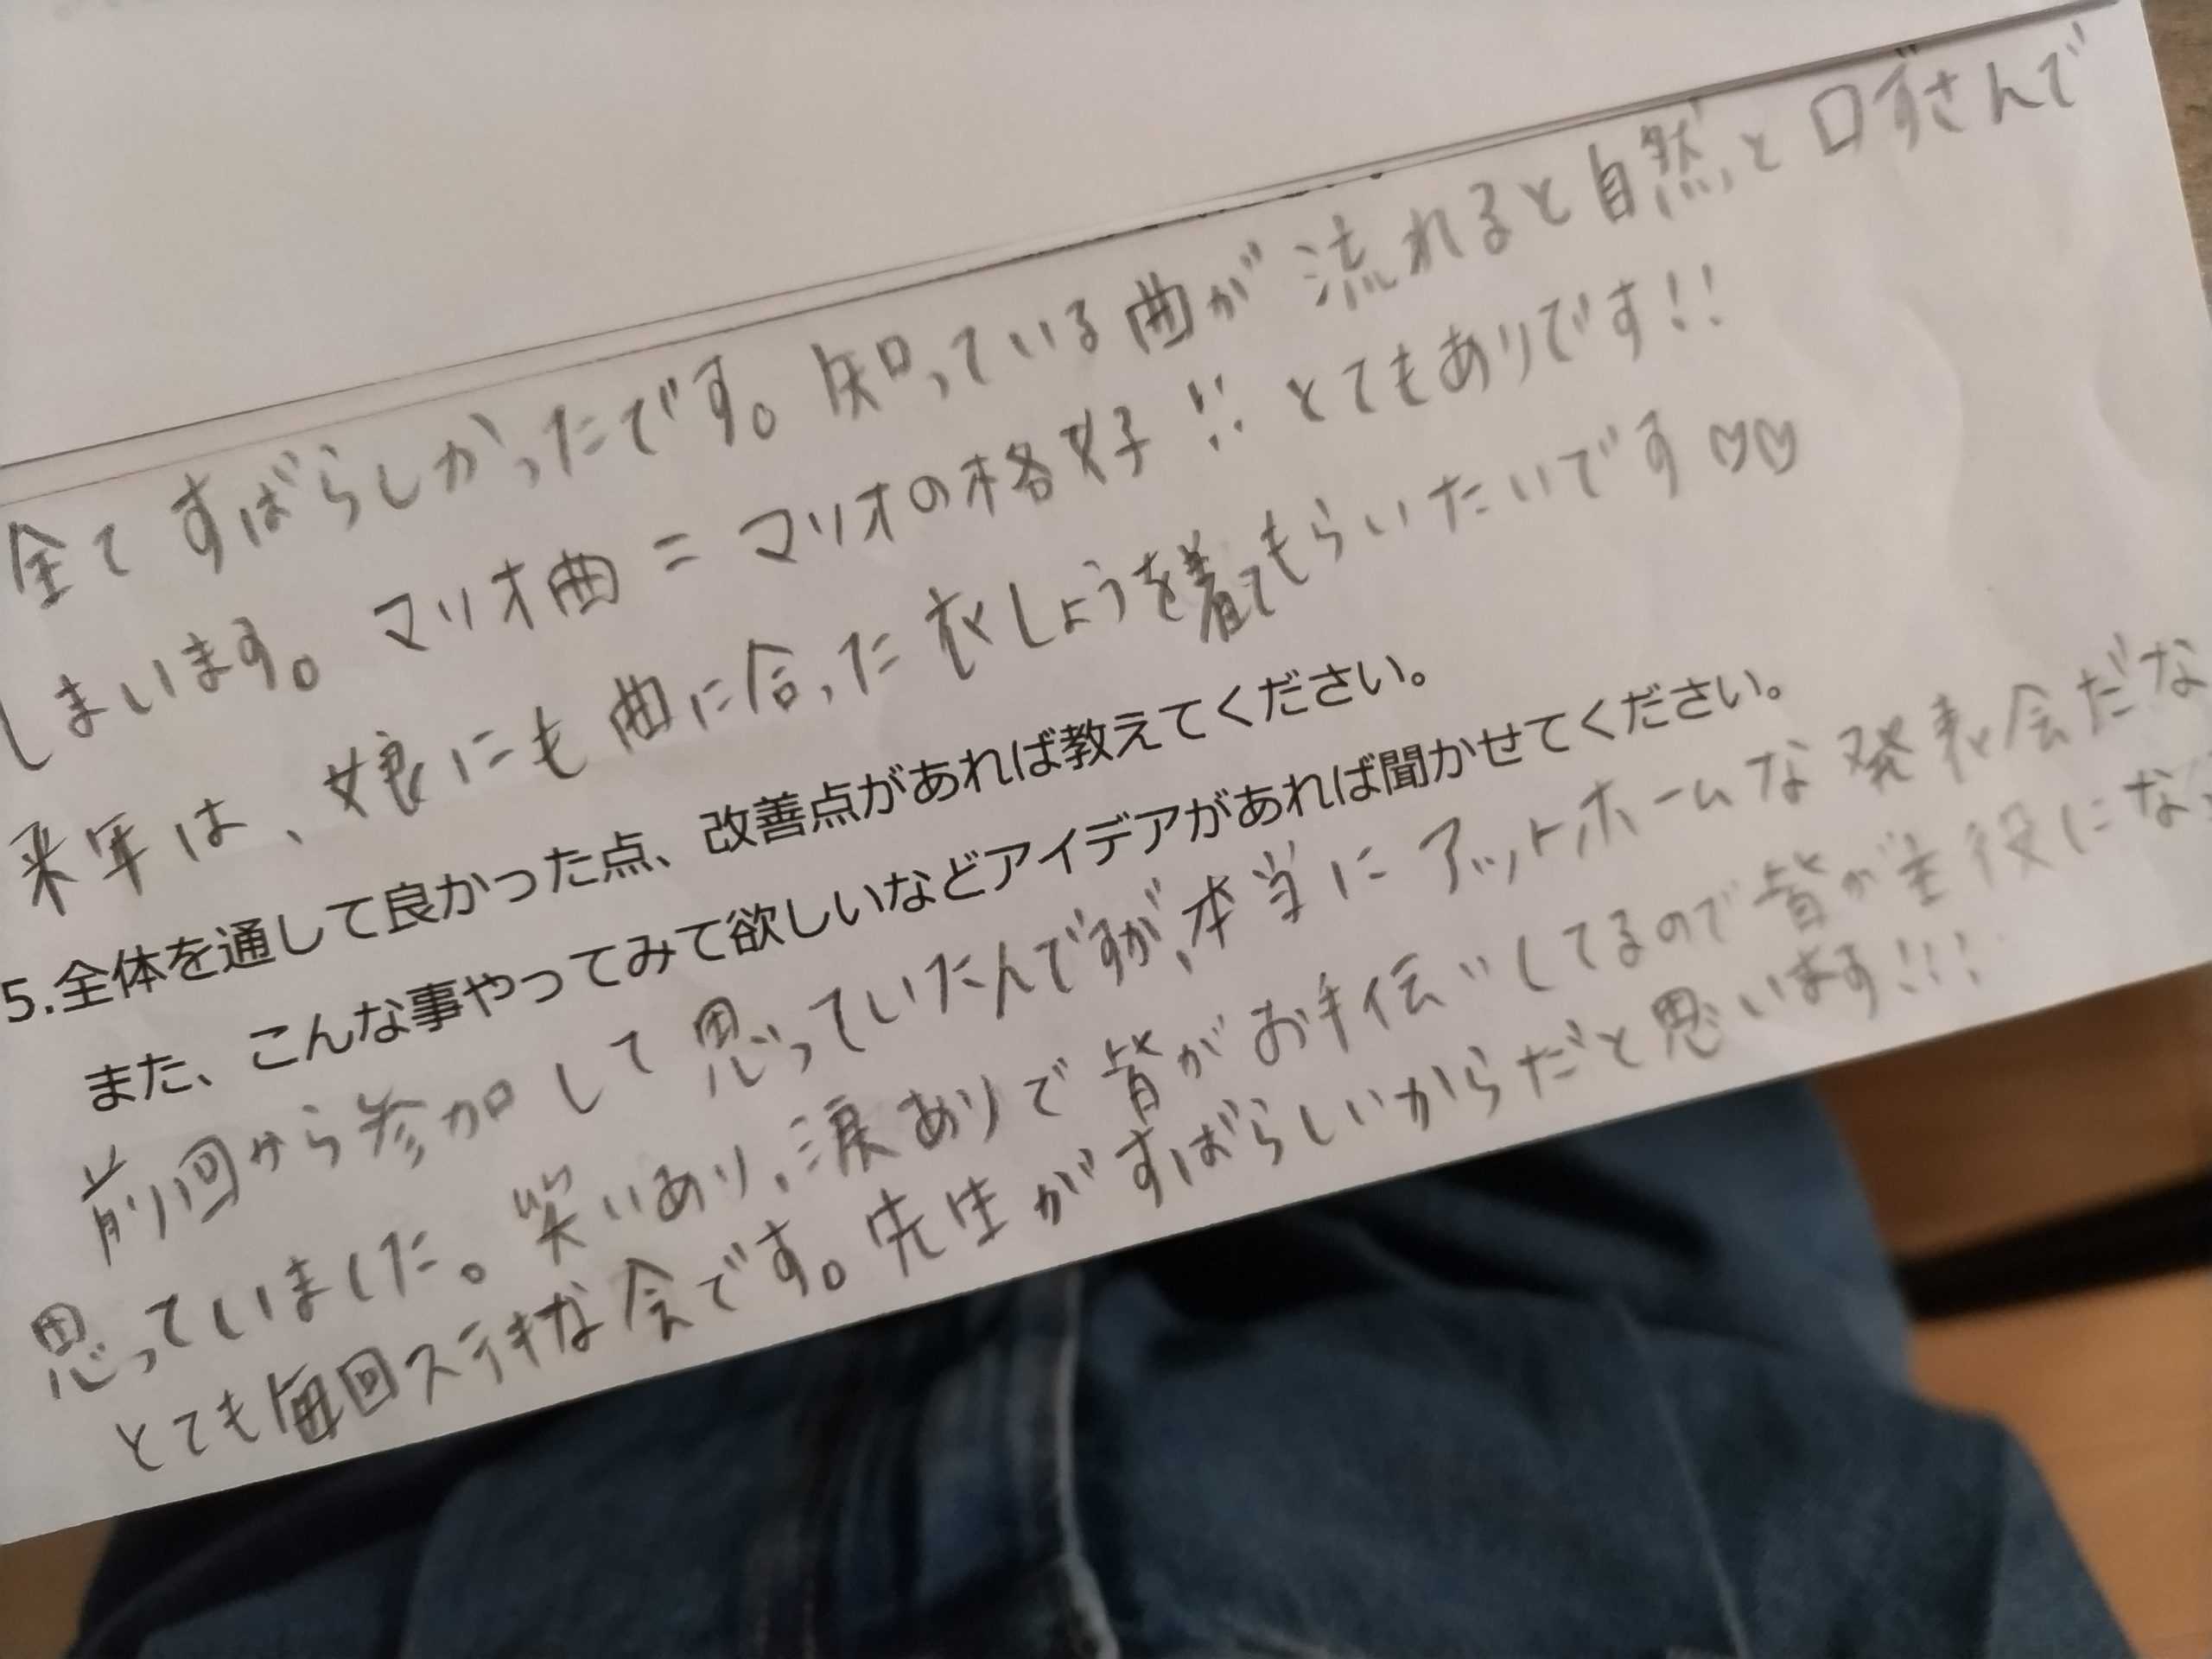 全てすばらしかったです。知っている曲が流れると自然と口ずさんで
しまいます。マリオ曲=マリオの格好!!とてもありです!!
来年は、娘にも曲に合った衣しょうを着てもらいたいです♡♡
5.全体を通して良かった点、改善点があれば教えてください。
また、こんな事やってみて欲しいなどアイデアがあれば聞かせてください。
前回から参加して思っていたんですが、本当にアットホームな発表会だな
思っていました。笑いあり、涙ありで皆がお手伝いしてるので皆が主役にな
とても毎回ステキな会です。先生がすばらしいからだと思います!!!